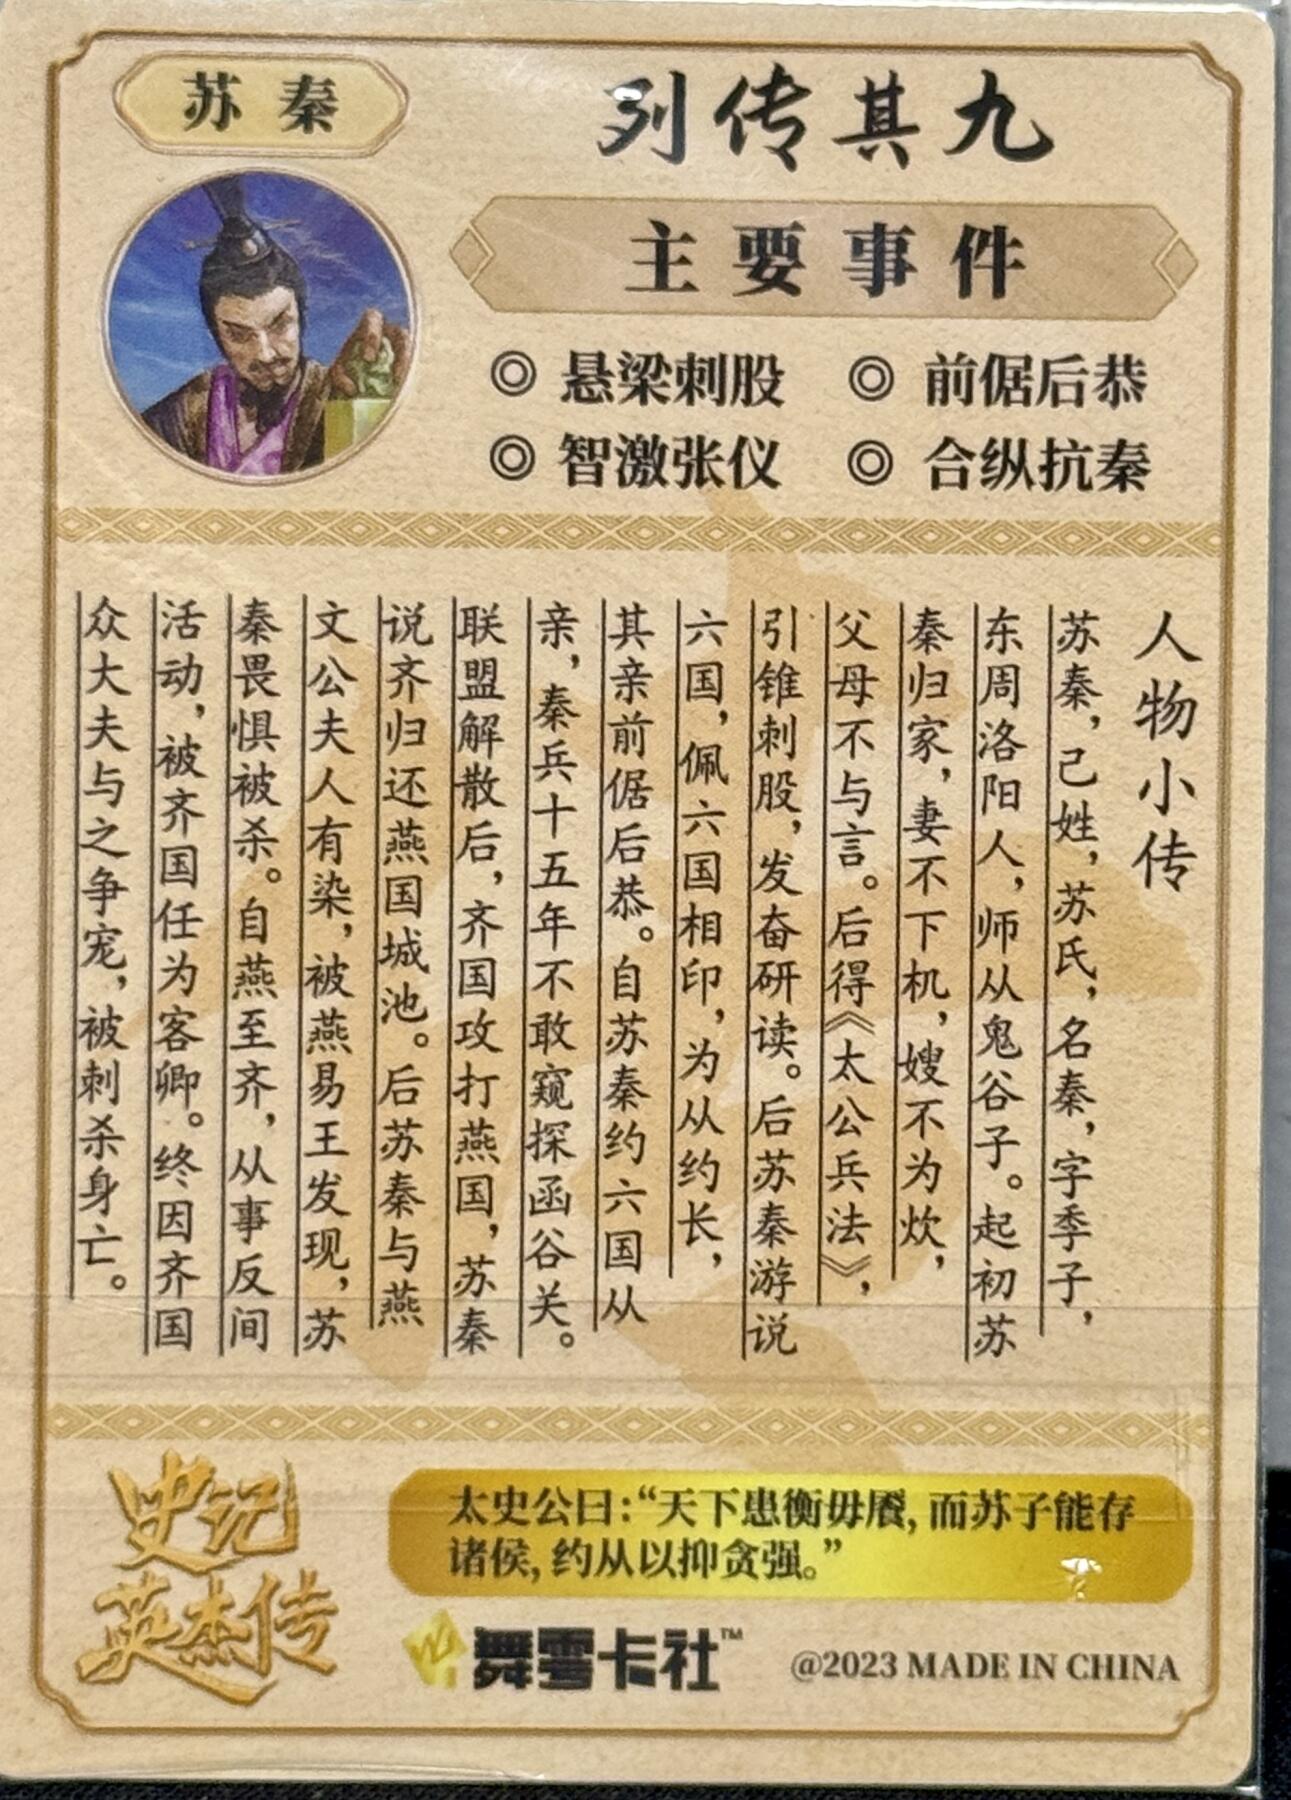 苏秦
列传其九
主要事件
◎ 悬梁刺股 ◎ 前倨后恭
◎ 智激张仪 ◎ 合纵抗秦
人物小传
苏秦，己姓，苏氏，名秦，字季子，
东周洛阳人，师从鬼谷子。起初苏
秦归家，妻不下机，嫂不为炊，
父母不与言。后得《太公兵法》，
引锥刺股，发奋研读。后苏秦游说
六国，佩六国相印，为从约长，
其亲前倨后恭。自苏秦约六国从
亲，秦兵十五年不敢窥探函谷关。
联盟解散后，齐国攻打燕国，苏秦
说齐归还燕国城池。后苏秦与燕
文公夫人有染，被燕易王发现，苏
秦畏惧被杀。自燕至齐，从事反间
活动，被齐国任为客卿。终因齐国
众大夫与之争宠，被刺杀身亡。
史记
英杰传
太史公曰：“天下患衡毋餍，而苏子能存
诸侯，约从以抑贪强。”
舞雩卡社™
@2023 MADE IN CHINA